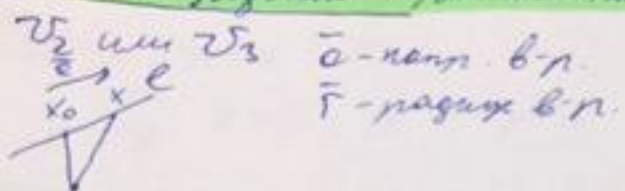 V₂ или V₃
ā - напр. в-р.
ē l
r̄ - радиус в-р.
x₀ x